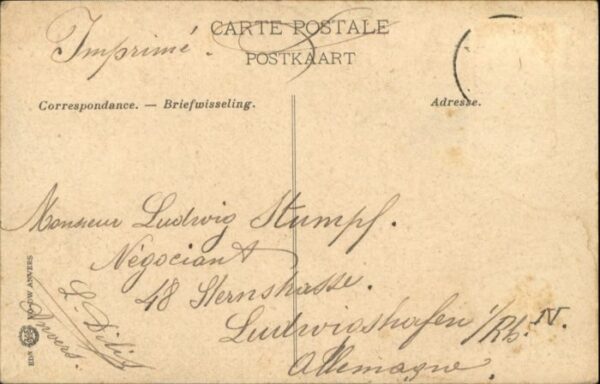 CARTE POSTALE
Imprimé.
POSTKAART
Correspondance. — Briefwisseling.
Adresse.
Monsieur Ludwig Stumpf.
Négociant
48 Sternstrasse.
Ludwigshafen i/Rh. N.
Allemagne.
L. Dilis
Anvers.
ANVERS